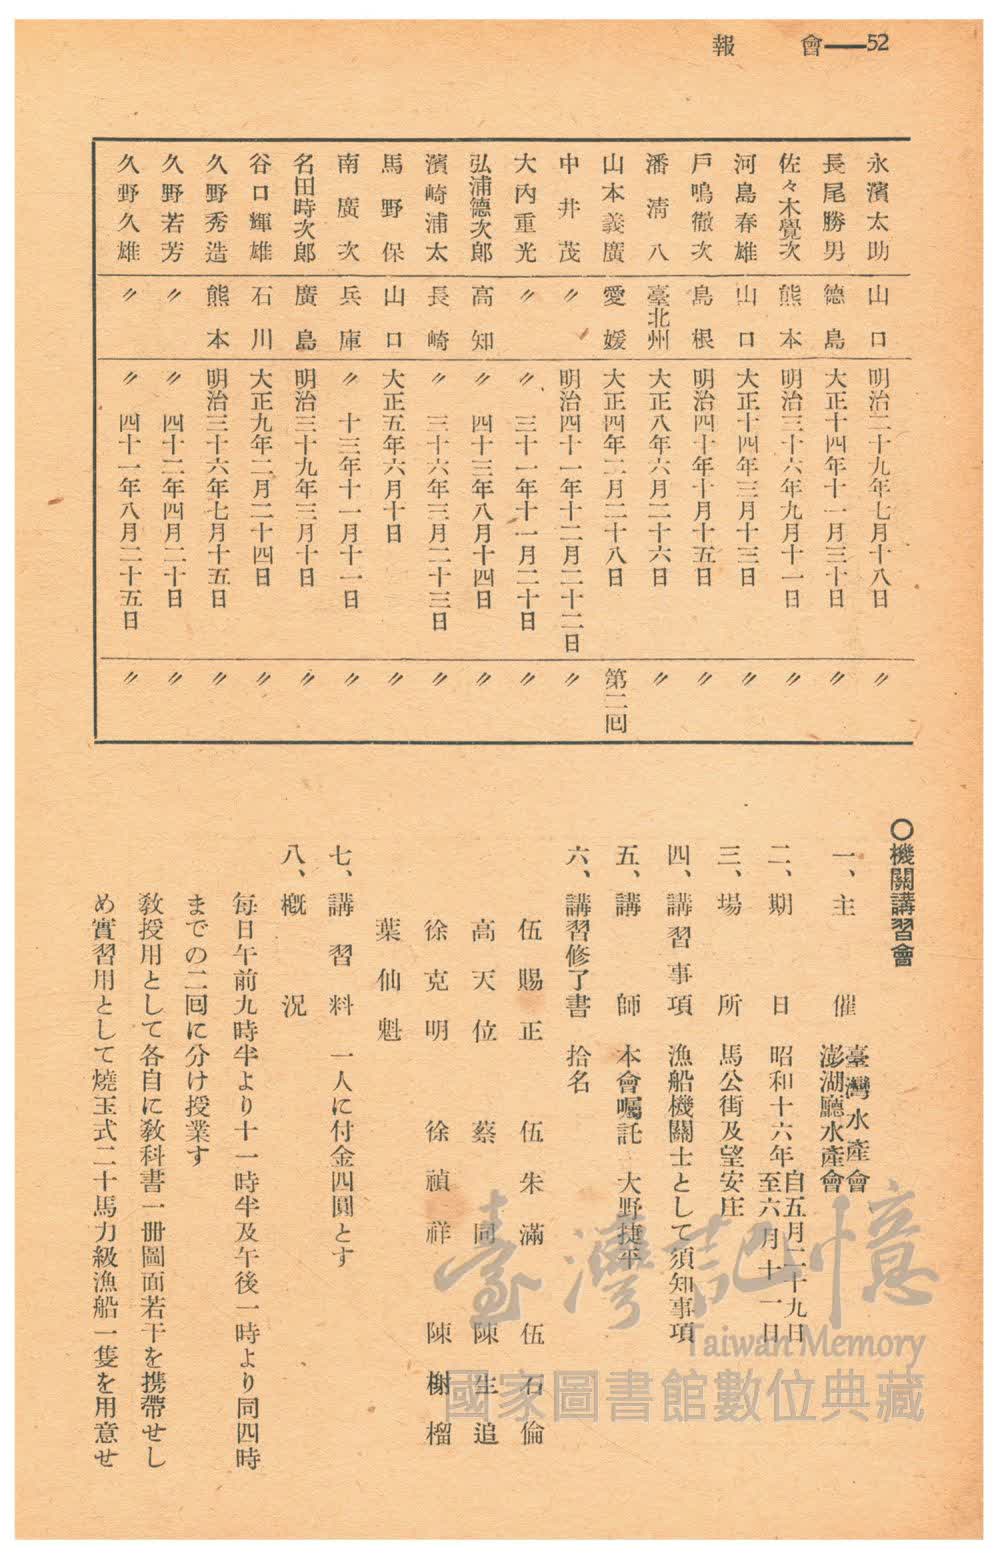 會報 52
永濱太助 山口 明治二十九年七月十八日 〃
長尾勝男 德島 大正十四年十一月三十日 〃
佐々木覺次 熊本 明治三十六年九月十一日 〃
河島春雄 山口 大正十四年三月十三日 〃
戸鳴徹次 島根 明治四十年十月十五日 〃
潘清八 臺北州 大正八年六月二十六日 〃
山本義廣 愛媛 大正四年二月二十八日 第二回
中井茂 〃 明治四十一年十二月二十二日 〃
大內重光 〃 〃 三十一年十一月二十日 〃
弘浦德次郞 高知 〃 四十三年八月十四日 〃
濱崎浦太 長崎 〃 三十六年三月二十三日 〃
馬野保 山口 大正五年六月十日 〃
南廣次 兵庫 〃 十三年十一月十一日 〃
名田時次郞 廣島 明治三十九年三月十日 〃
谷口輝雄 石川 大正九年二月二十四日 〃
久野秀造 熊本 明治三十六年七月十五日 〃
久野若芳 〃 〃 四十二年四月二十日 〃
久野久雄 〃 〃 四十一年八月二十五日 〃
〇機關講習會
一、主催 臺灣水產會
澎湖廳水產會
二、期日 昭和十六年自五月二十九日
至六月十一日
三、場所 馬公街及望安庄
四、講習事項 漁船機關士として須知事項
五、講師 本會囑託 大野捷平
六、講習修了書 拾名
伍賜正 伍朱滿 伍石倫
高天位 蔡同 陳生追
徐克明 徐禎祥 陳榭榴
葉仙魁
七、講習料 一人に付金四圓とす
八、槪況
每日午前九時半より十一時半及午後一時より同四時
までの二回に分け授業す
敎授用として各自に敎科書一冊圖面若干を携帶せし
め實習用として燒玉式二十馬力級漁船一隻を用意せ
臺灣記憶
Taiwan Memory
國家圖書館數位典藏